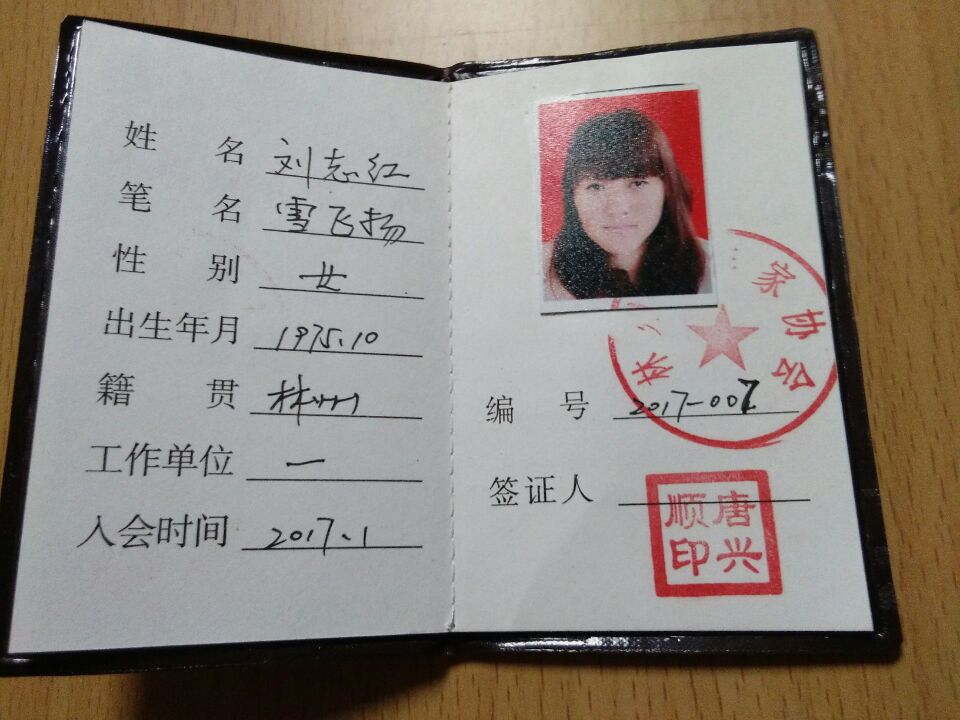 姓名 刘志红
笔名 雪飞扬
性别 女
出生年月 1975.10
籍贯 林州
工作单位 一
入会时间 2017.1
林
家协公
编号 2017-007
签证人
唐兴顺印